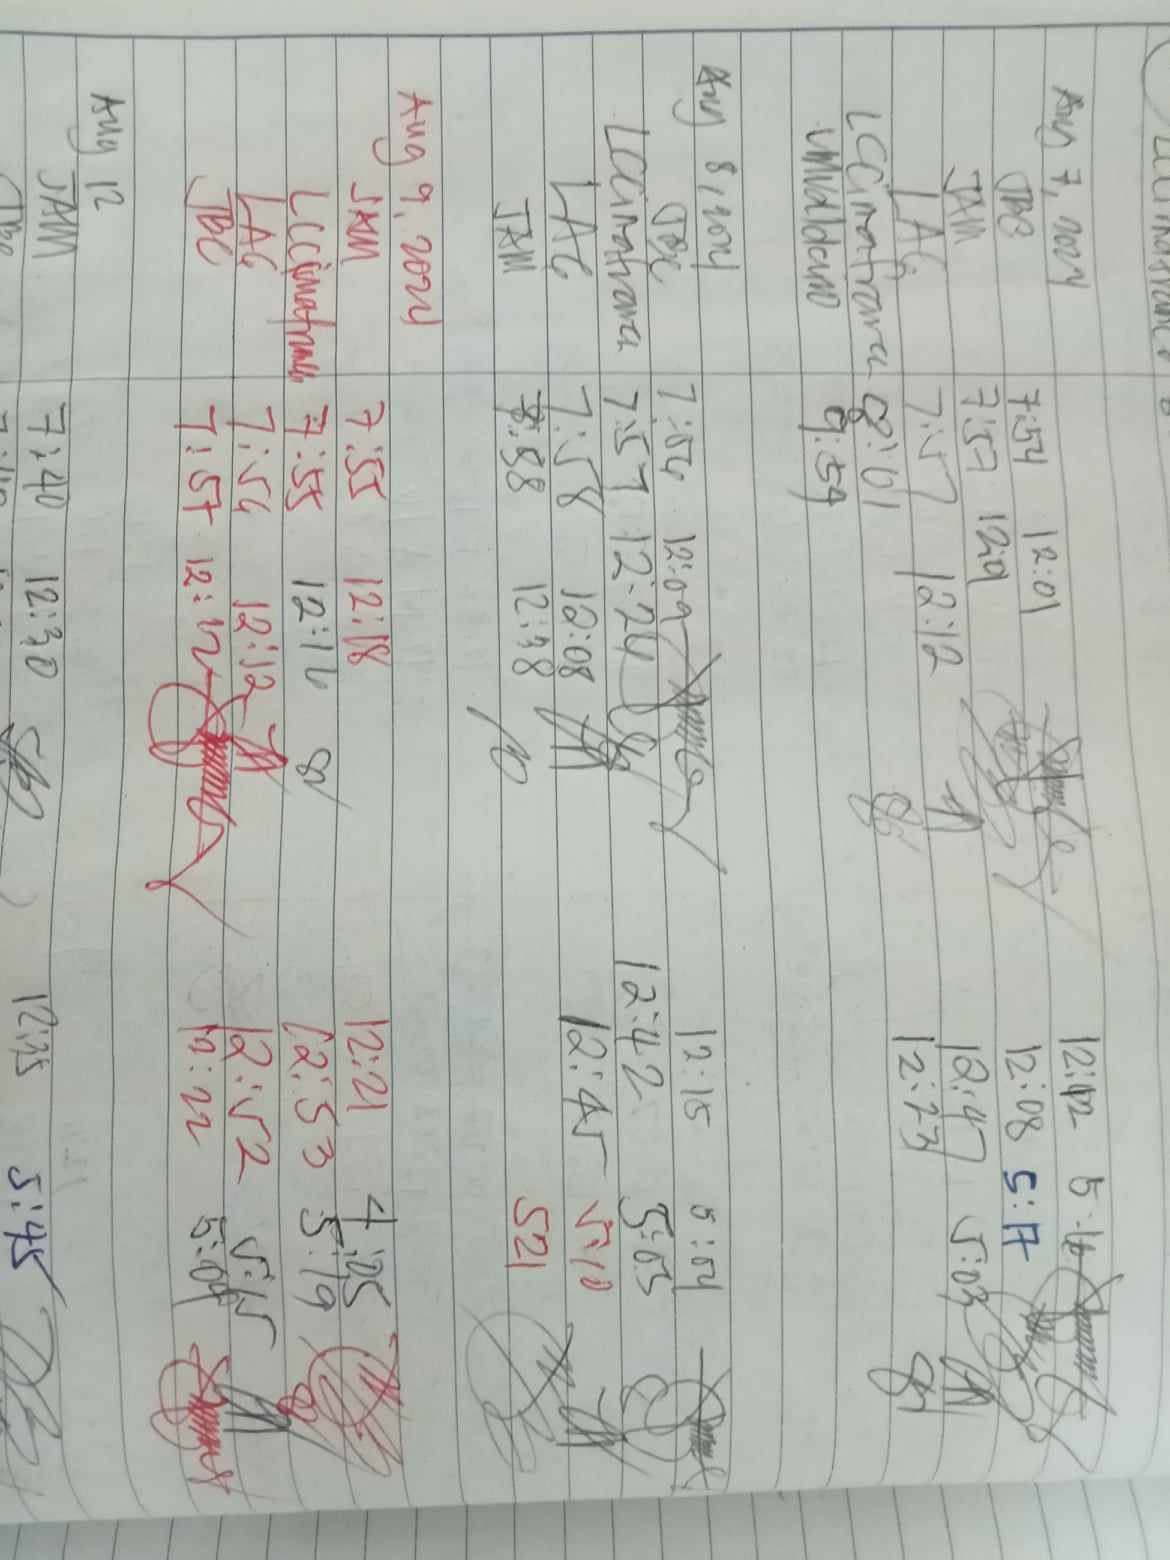 Aug 7, 2024
JBC 7:54 12:01 12:02 5:16
JAM 7:57 12:01 12:08 5:17
LAG 7:57 12:12 12:47 5:03
LCCimafranca 8:01 12:23
9:59
Aug 8, 2024
JBC 7:54 12:09 12:15 5:04
LCCimafranca 7:57 12:24 12:42 5:03
LAG 7:58 12:08 12:45 5:10
JAM 12:38 521
Aug 9, 2024
JAM 7:55 12:18 12:21 4:05
LCCimafranca 7:55 12:16 12:53 5:19
LAG 7:56 12:12 12:52 5:15
JBC 7:57 12:12 12:22 5:09
Aug 12
JAM 7:40 12:30 12:35 5:45
JBC